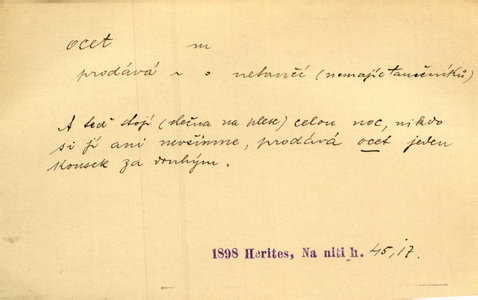 ocet m
prodává ~ o netančí (nemajíc tanečníků)
A teď stojí (slečna na plese) celou noc, nikdo
si jí ani nevšimne, prodává ocet jeden
kousek za druhým.
1898 Herites, Na niti h. 45, 17.